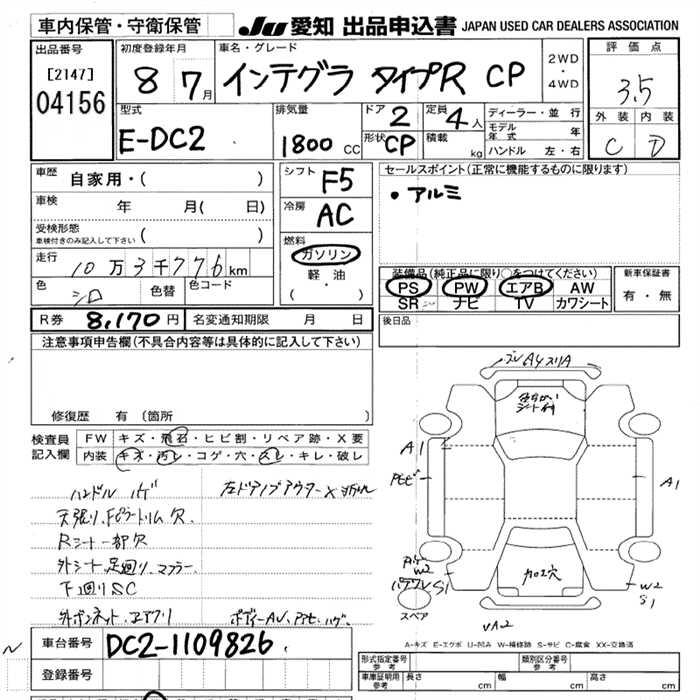 車内保管・守衛保管
JU 愛知 出品申込書 JAPAN USED CAR DEALERS ASSOCIATION
出品番号
[2147]
04156
初度登録年月
8 7月
車名・グレード
インテグラ タイプR CP
2WD
・
4WD
評価点
3.5
外装 内装
C D
型式
E-DC2
排気量
1800 cc
ドア 2
形状 CP
定員 4人
積載 kg
ディーラー・並行
モデル年式 年
ハンドル 左・右
車歴
自家用・( )
車検
年 月( 日)
受検形態
車検付きのみ記入して下さい ( )
走行
10万3千776km
色
シロ
色替
色コード
シフト
F5
冷房
AC
燃料
ガソリン
軽油
( ・ )
セールスポイント(正常に機能するものに限ります)
• アルミ
装備品(純正品に限り○をつけてください)
PS PW エアB AW
SR ナビ TV カワシート
新車保証書
有・無
R券 8,170円 名変通知期限 月 日
後日品
注意事項申告欄(不具合内容等は具体的に記入して下さい)
修復歴 有(箇所
検査員記入欄
FW キズ・飛石・ヒビ割・リペア跡・X要
内装 キズ・汚レ・コゲ・穴・スレ・キレ・破レ
ハンドル ハゲ
左ドアノブアウターX
天張り、Fピラートリム欠
Rシート一部欠
外シート、足廻り、マフラー
下廻りSC
外ボンネット、エアクリ
A1
A1
W2
W2
S1
S1
加工穴
スペア
A-キズ E-エクボ U-凹み W-補修跡 S-サビ C-腐食 XX-交換済
車台番号
DC2-1109826
登録番号
形式指定番号
参考
類別区分番号
参考
車庫証明用
参考
長さ cm 幅 cm 高さ cm